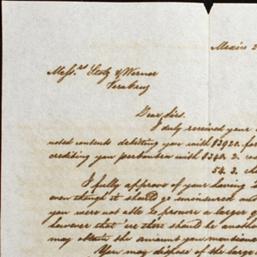 Mexico 2
Messrs. Stolz & Werner
Vera Cruz
Dear Sirs.
I duly received your
noted contents debiting you with $292.0. for
crediting you per number with $
54. 3. ch
I fully approve of your having
even though it should go uninsured
you were not able to procure a larger
however that in there should be another
may obtain the amount you mention
You may dispose of the large